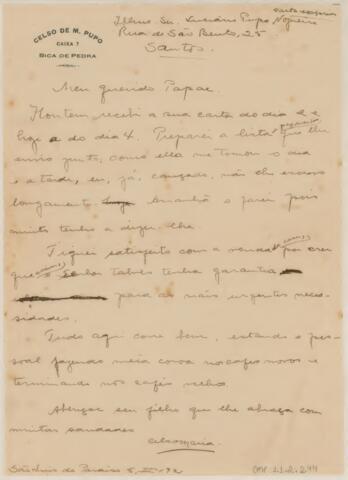 CELSO DE M. PUPO
CAIXA 7
BICA DE PEDRA
carta expressa
Illmo Sr. Luciano Pupo Nogueira
Rua de São Bento, 25
Santos.
Meu querido Papae.
Hontem recebi a sua carta do dia 2 e
hoje a do dia 4. Preparei a lista pequena que lhe
envio junto, como ella me tomou o dia
e a tarde, eu, já, cançado, não lhe escrevo
longamente. Amanhã o farei pois
muito tenho a dizer-lhe.
Fiquei satisfeito com a venda por crer
que o Senhor talvez tenha garantia
para as mais urgentes neces-
sidades.
Tudo aqui corre bem, estando o pes-
soal fazendo meia coroa nos cafés novos e
terminando nos cafés velhos.
Abençoe seu filho que lhe abraça com
muitas saudades
Celso Maria.
São Luis do Paraiso 5,